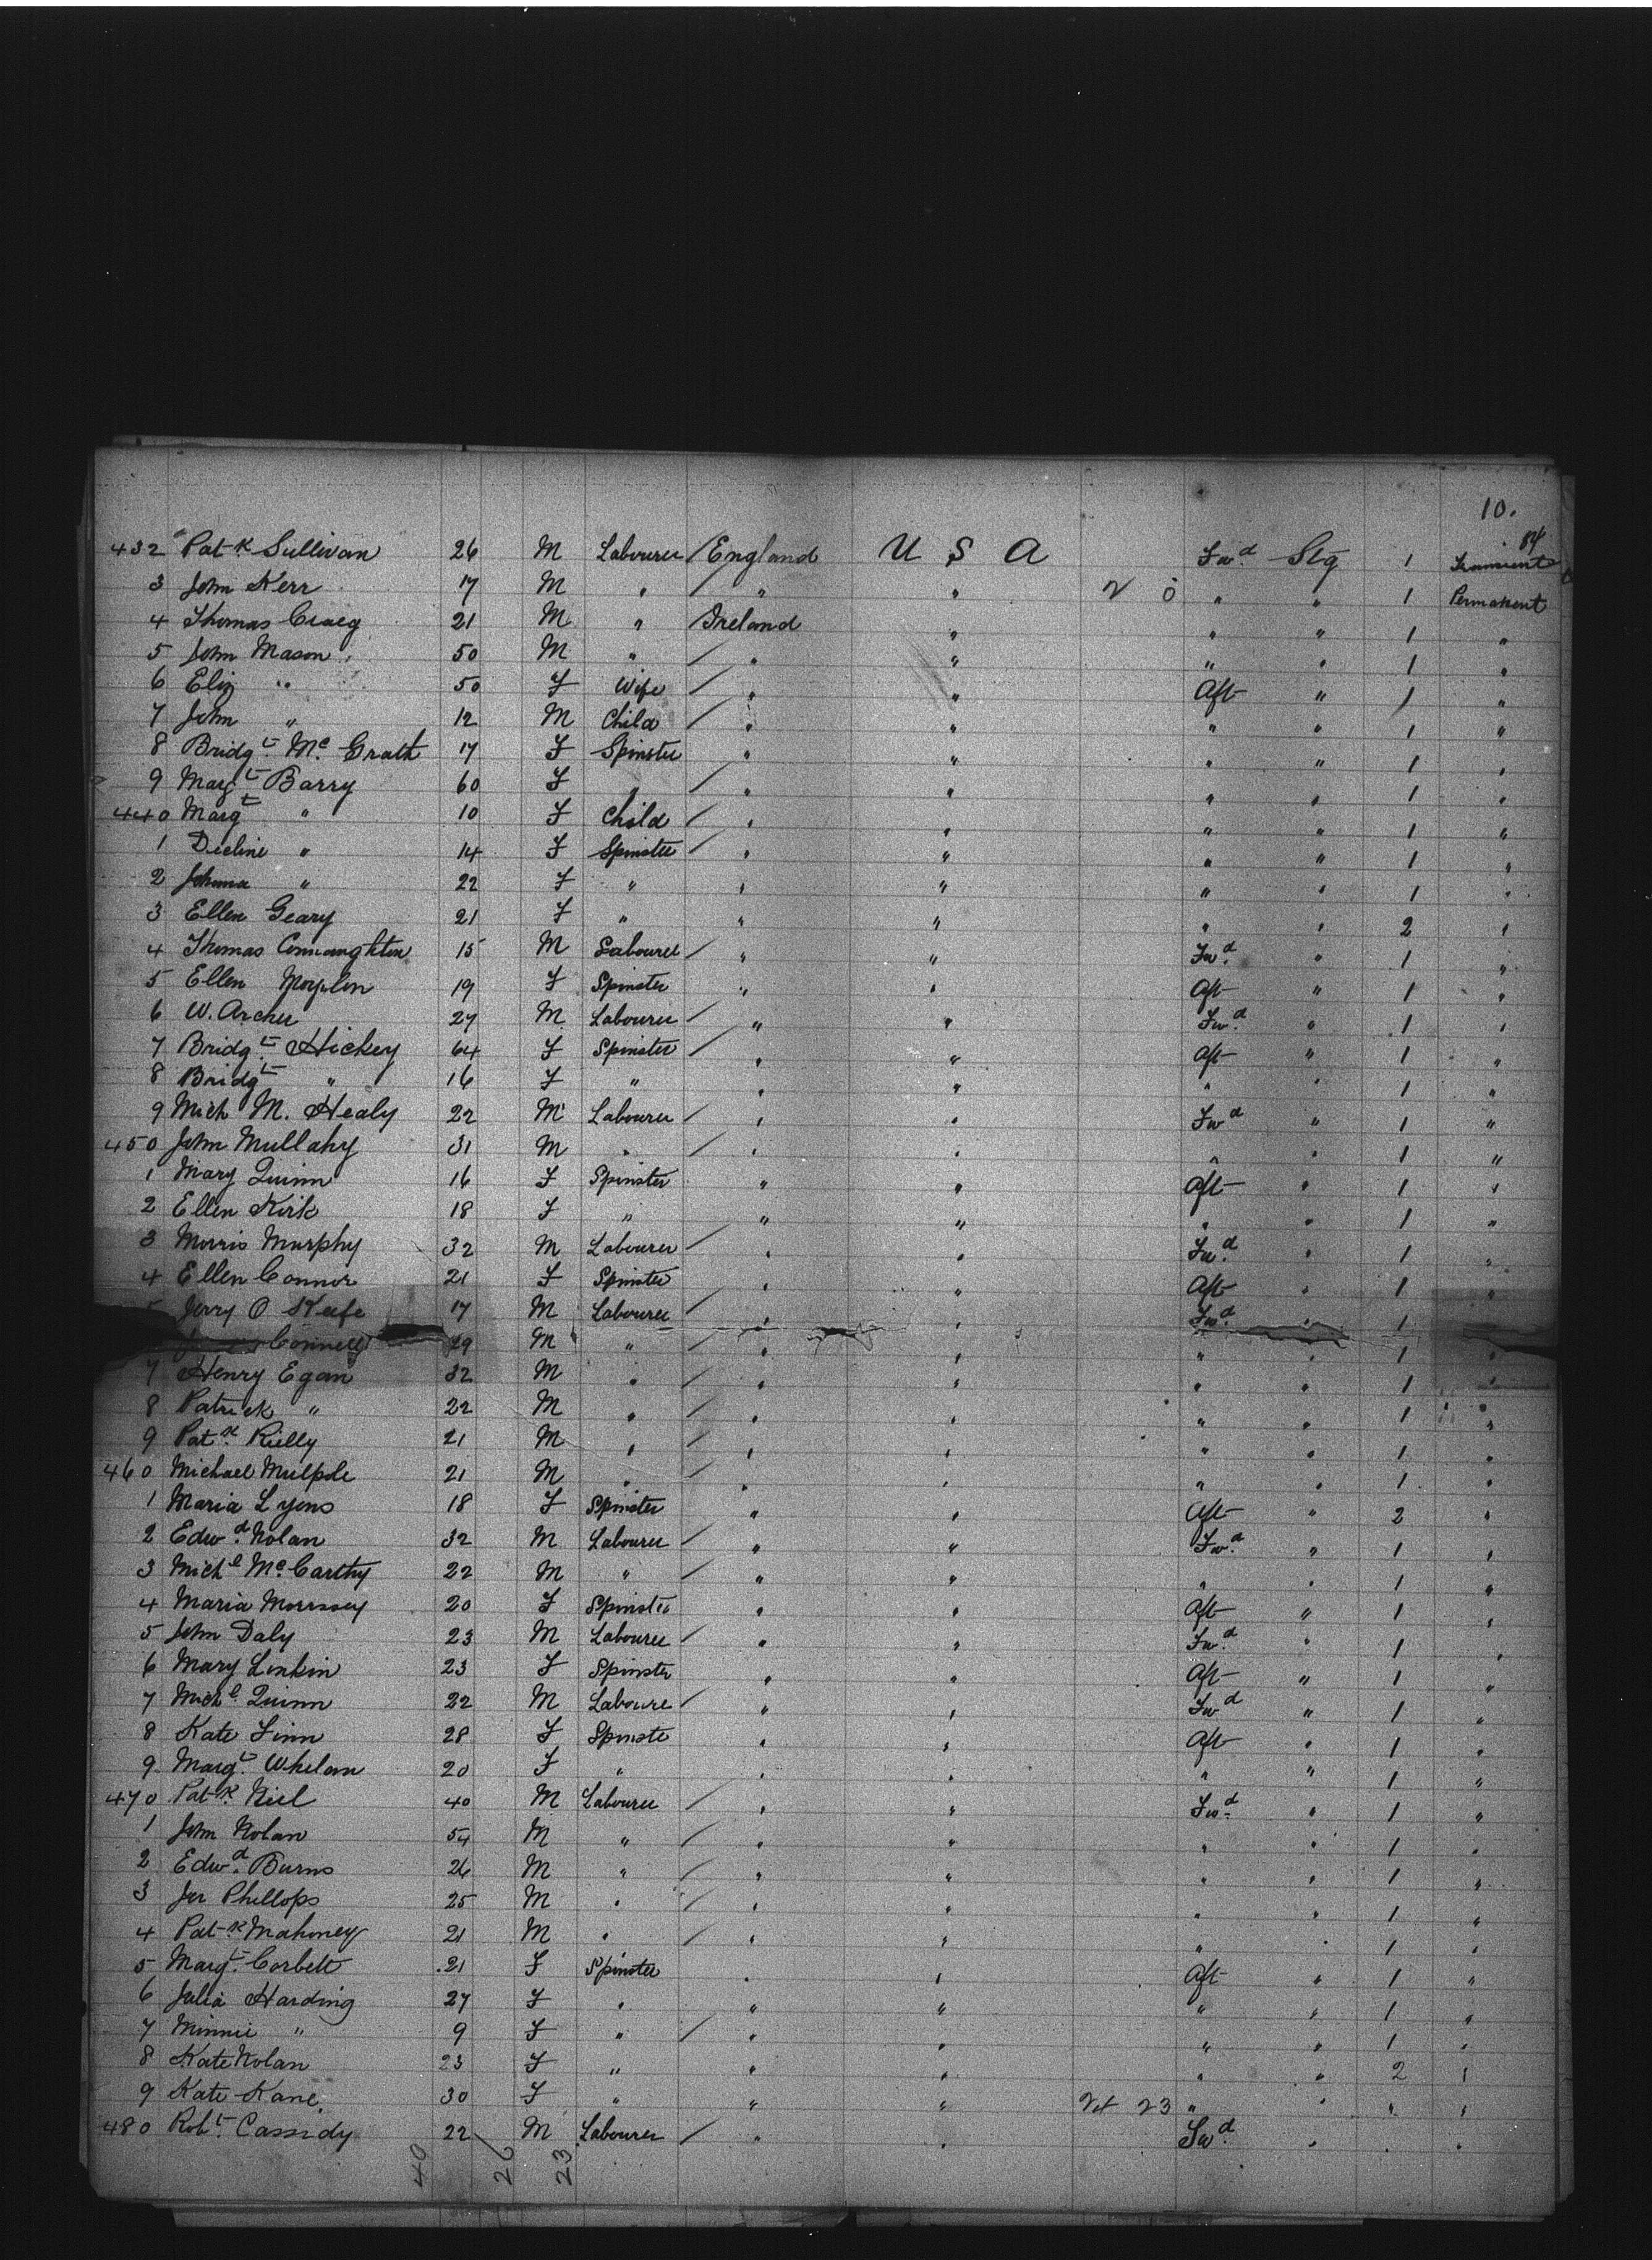 10.
84
432 Patk Sullivan 26 M Labourer / England U S A Fwd Stg 1 Transient
3 John Kerr 17 M " / " " 2 0 " " 1 Permanent
4 Thomas Craig 21 M " Ireland " " " 1 "
5 John Mason 50 M " / " " " " 1 "
6 Eliz " 50 F Wife / " " Aft " 1 "
7 John " 12 M Child / " " " " 1 "
8 Bridgt Mc Grath 17 F Spinster " " " " 1 "
9 Margt Barry 60 F " / " " " " 1 "
440 Margt " 10 F Child / " " " " 1 "
1 Decline " 14 F Spinster / " " " " 1 "
2 Johana " 22 F " " " " " 1 "
3 Ellen Geary 21 F " " " " " 2 "
4 Thomas Connaughton 15 M Labourer / " " Fwd " 1 "
5 Ellen 19 F Spinster " " Aft " 1 "
6 W. Archer 27 M Labourer / " " Fwd " 1 "
7 Bridgt Hickey 64 F Spinster / " " Aft " 1 "
8 Bridgt " 16 F " " " " " 1 "
9 Mich M. Healy 22 M Labourer / " " Fwd " 1 "
450 John Mullahy 31 M " / " " " " 1 "
1 Mary Quinn 16 F Spinster " " Aft " 1 "
2 Ellen Kirk 18 F " " " " " 1 "
3 Morris Murphy 32 M Labourer / " " Fwd " 1 "
4 Ellen Connor 21 F Spinster " " Aft " 1 "
5 Jerry O Keefe 17 M Labourer / " " Fwd " 1 "
Connell 29 M " / " " " " 1 "
7 Henry Egan 32 M " / " " " " 1 "
8 Patrick " 22 M " / " " " " 1 "
9 Patk Rielly 21 M " / " " " " 1 "
460 Michael 21 M " / " " " " 1 "
1 Maria Lyons 18 F Spinster " " Aft " 2 "
2 Edwd Nolan 32 M Labourer / " " Fwd " 1 "
3 Michl Mc Carthy 22 M " / " " " " 1 "
4 Maria Morrssey 20 F Spinster " " Aft " 1 "
5 John Daly 23 M Labourer / " " Fwd " 1 "
6 Mary Linkin 23 F Spinster " " Aft " 1 "
7 Michl Quinn 22 M Laboure / " " Fwd " 1 "
8 Kate Finn 28 F Spinste " " Aft " 1 "
9 Margt Whelan 20 F " " " " " 1 "
470 Patk Niel 40 M Labourer / " " Fwd " 1 "
1 John Nolan 54 M " / " " " " 1 "
2 Edwd Burns 26 M " / " " " " 1 "
3 Jer Phillops 25 M " / " " " " 1 "
4 Patk Mahoney 21 M " / " " " " 1 "
5 Margt Corbett 21 F Spinster " " Aft " 1 "
6 Julia Harding 27 F " " " " " 1 "
7 Minnie " 9 F " / " " " " 1 "
8 Kate Nolan 23 F " " " " " 2 "
9 Kate Kane 30 F " " " 24 23 " " " "
480 Robt Cassidy 22 M Labourer / " " Fwd " " "
40 26 23